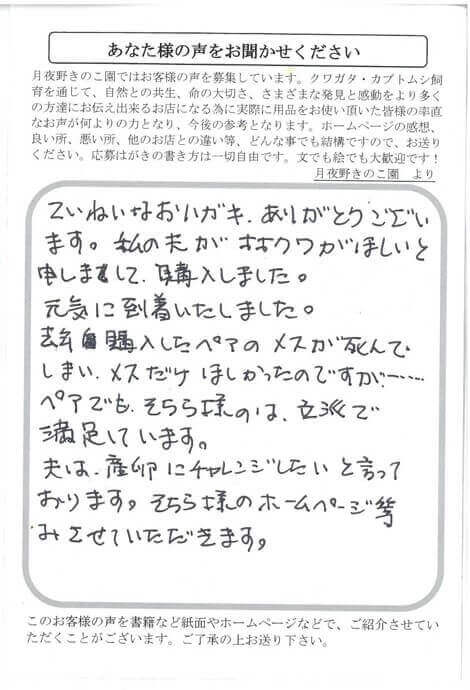 あなた様の声をお聞かせください
月夜野きのこ園ではお客様の声を募集しています。クワガタ・カブトムシ飼
育を通じて、自然との共生、命の大切さ、さまざまな発見と感動をより多く
の方達にお伝え出来るお店になる為に実際に用品をお使い頂いた皆様の率直
なお声が何よりの力となり、今後の参考となります。ホームページの感想、
良い所、悪い所、他のお店との違い等、どんな事でも結構ですので、お送り
ください。応募はがきの書き方は一切自由です。文でも絵でも大歓迎です！
月夜野きのこ園　より
ていねいなおハガキ、ありがとうござい
ます。私の夫が オオクワがほしいと
申しまして、購入しました。
元気に到着いたしました。
去年購入したペアのメスが死んで
しまい、メスだけ ほしかったのですが……
ペアでも、そちら様のは、立派で
満足しています。
夫は、産卵にチャレンジしたい と言って
おります。そちら様のホームページ等
みさせていただきます。
このお客様の声を書籍など紙面やホームページなどで、ご紹介させてい
ただくことがございます。ご了承の上お送り下さい。